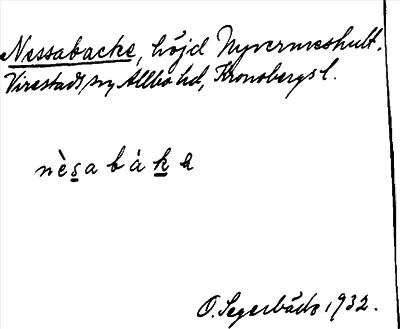 Nessabacke, höjd Nyvermeshult.
Virestads sn, Allbo hd, Kronobergs l.
nèsabákɐ
O. Segerbäck, 1932.